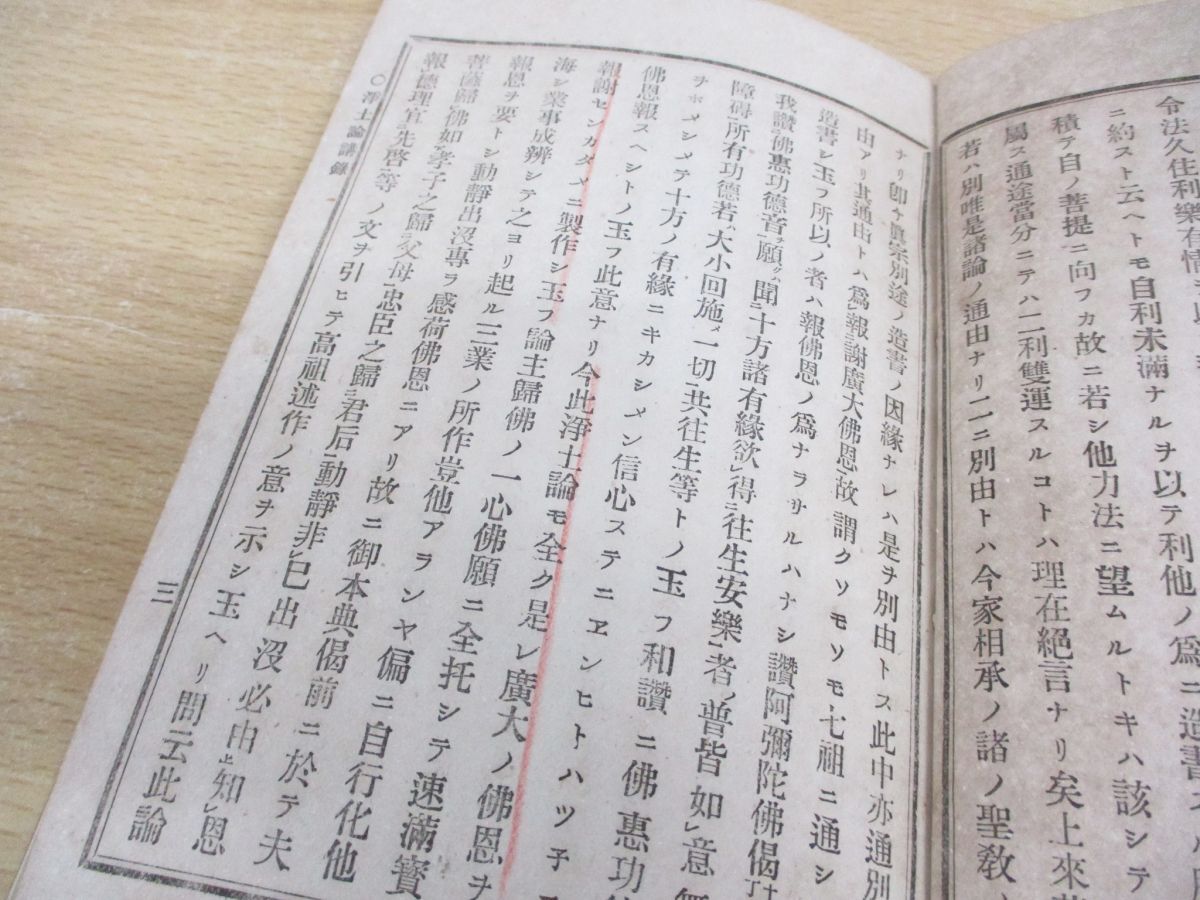 令法久住利樂有情
ニ約スト云ヘトモ自利未滿ナルヲ以テ利他ノ爲ニ造書
積テ自ノ菩提ニ向フカ故ニ若シ他力法ニ望ムルトキハ該シテ
屬ス通途當分ニテハ二利雙運スルコトハ理在絕言ナリ矣上來
若ハ別唯是諸論ノ通由ナリ二ニ別由トハ今家相承ノ諸ノ聖敎
ナリ卽ケ眞宗別途ノ造書ノ因緣ナレハ是ヲ別由トス此中亦通別
由アリ其通由トハ爲報謝廣大佛恩故謂クソモソモ七祖ニ通シ
造書シ玉フ所以ノ者ハ報佛恩ノ爲ナラサルハナシ讚阿彌陀佛偈
我讚佛惠功德音願クハ聞ニ十方諸有緣欲レ得ニ往生安樂者ノ普皆如レ意無
障碍所有功德若ハ大小回施シメ一切共往生等トノ玉フ和讚ニ佛惠功
ヲホメシメテ十方ノ有緣ニキカシメン信心ステニヱンヒトハツ子
佛恩報スヘシトノ玉フ此意ナリ今此淨土論モ全ク是レ廣大ノ佛恩ヲ
報謝センカタメニ製作シ玉フ論主歸佛ノ一心佛願ニ全托シテ速滿寶
海シ業事成辨シテ之ヨリ起ル三業ノ所作豈他アランヤ偏ニ自行化他
報恩ヲ要トシ動靜出沒專ラ感荷佛恩ニアリ故ニ御本典偈前ニ於テ夫
菩薩歸佛如孝子之歸父母忠臣之歸君后動靜非レ已出沒必由知レ恩
報德理宜先啓等ノ文ヲ引ヒテ高祖述作ノ意ヲ示シ玉ヘリ問云此論
○淨土論講錄
三